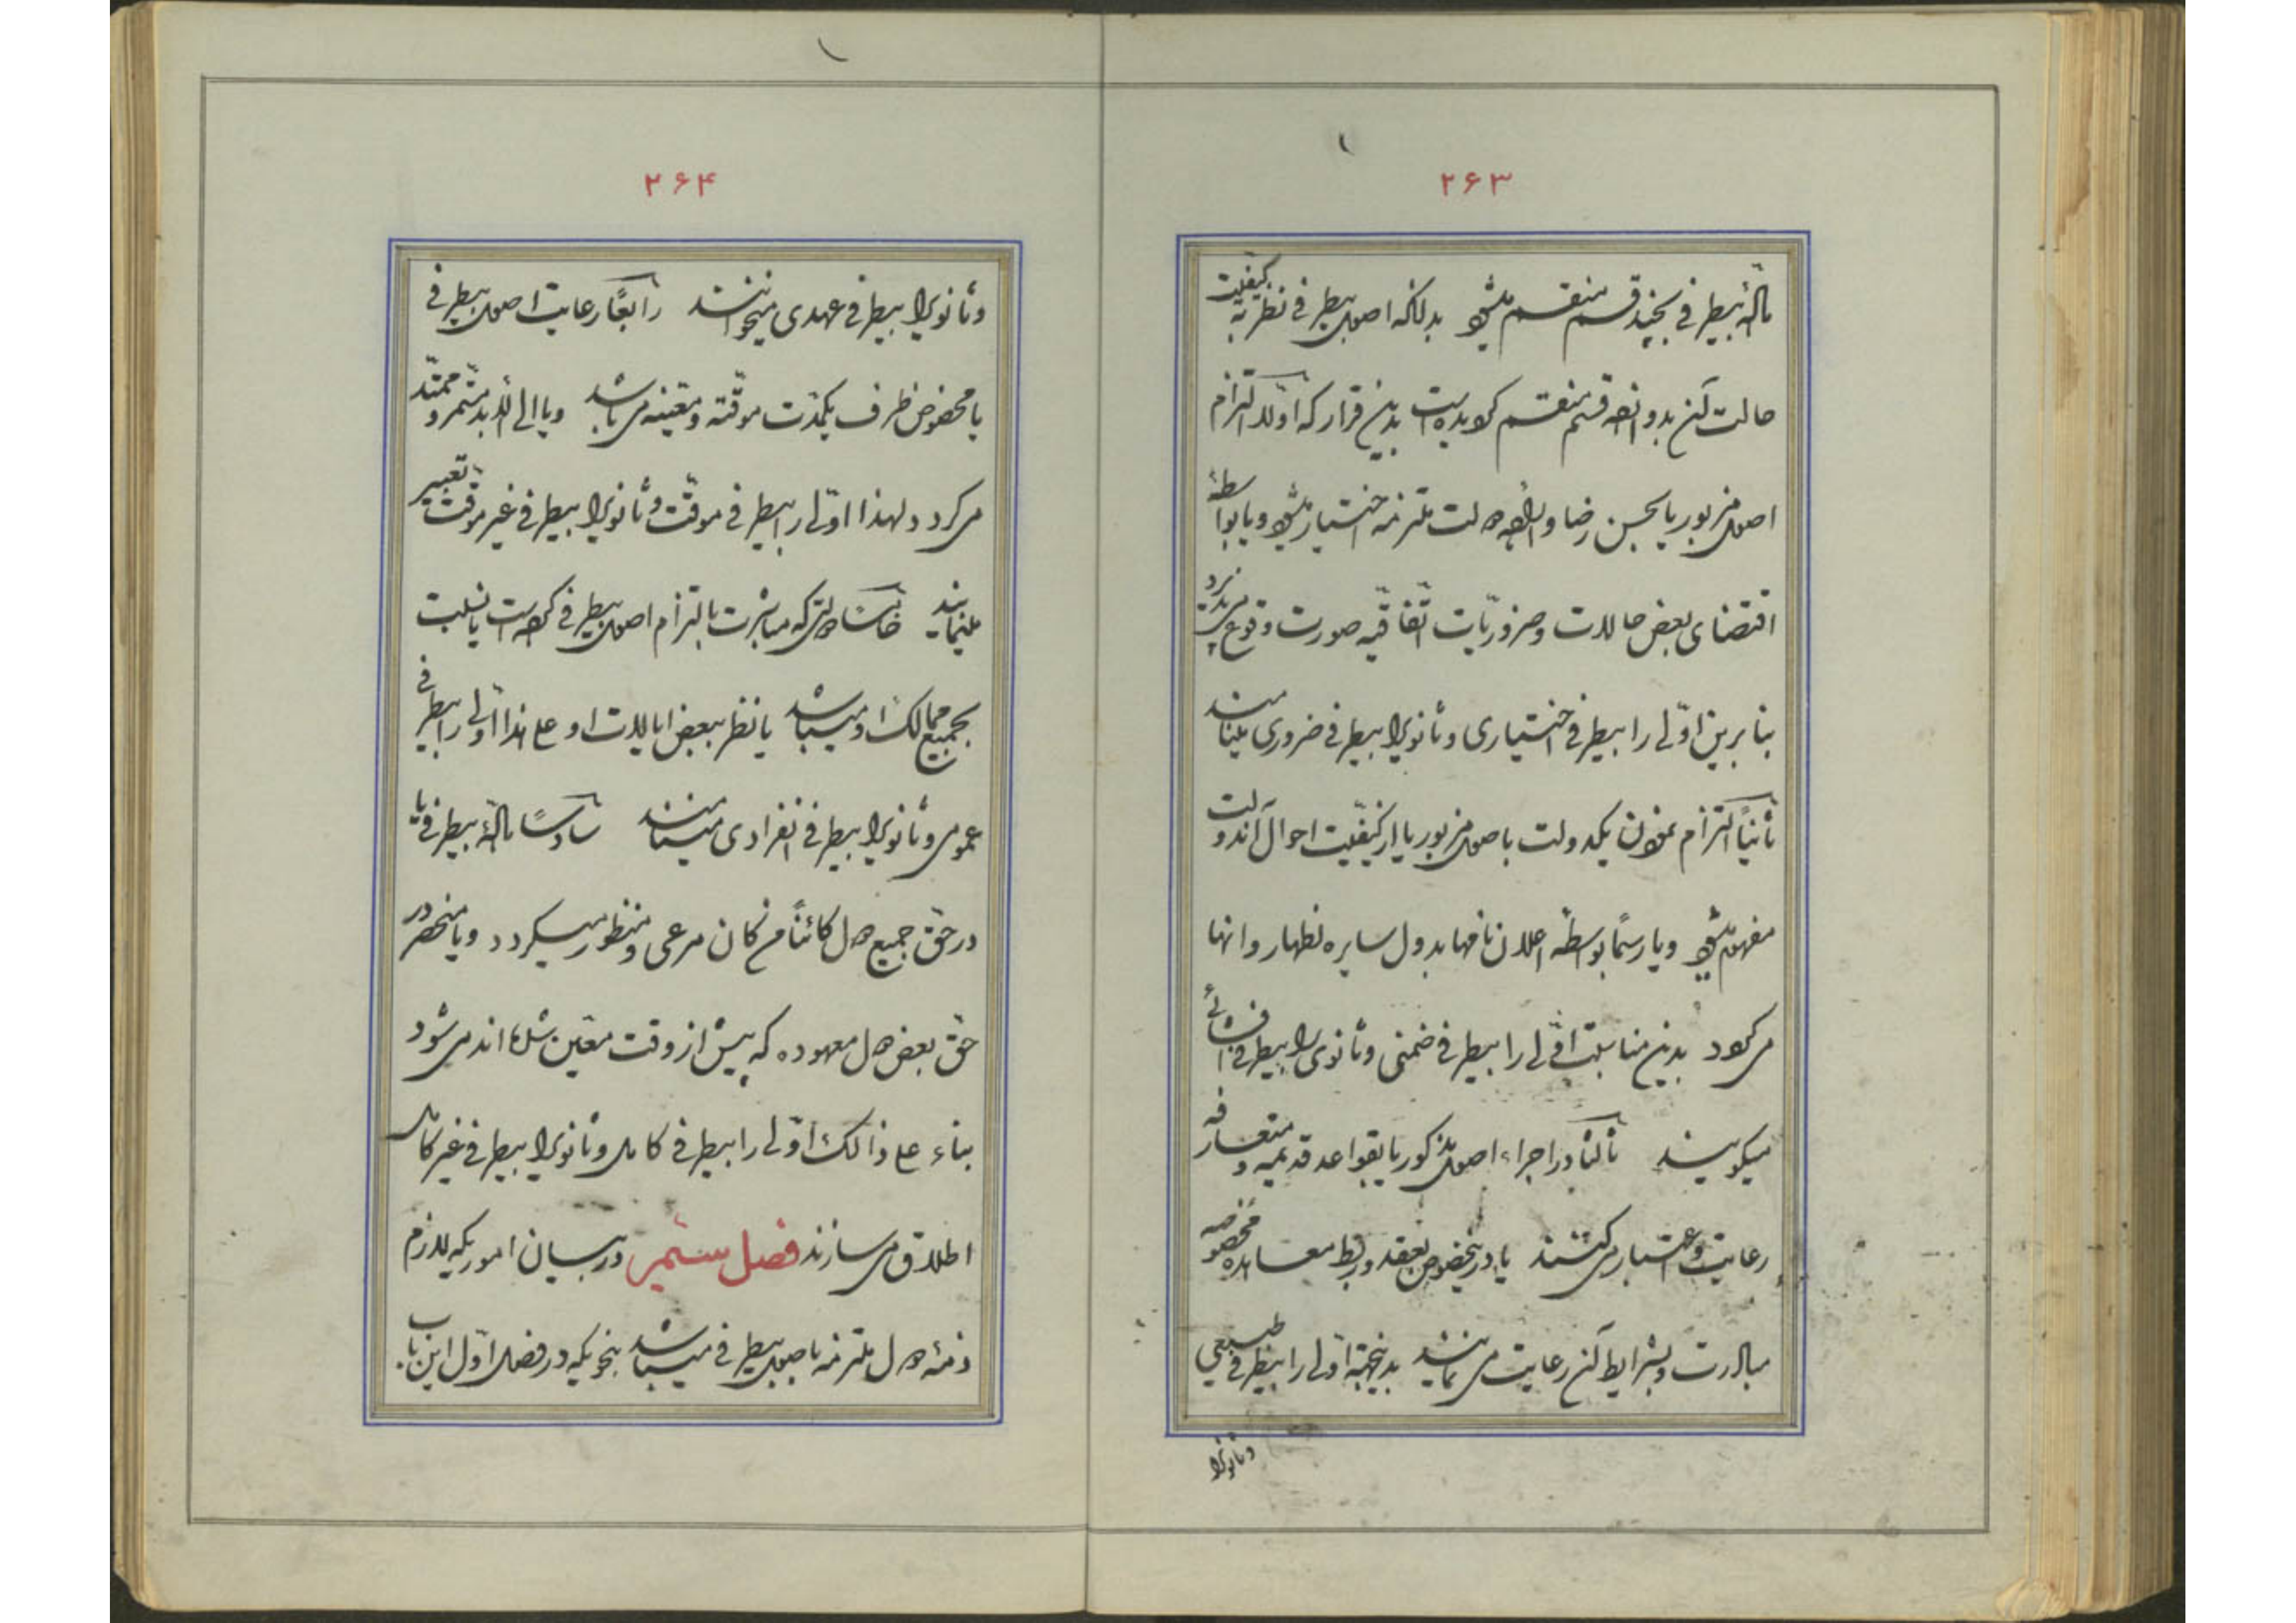 ۲۶۳
مالهٔ بیطرفی بچند قسم منقسم میشود بدانکه اصول بیطرفی نظر به کیفیت
حالت آن بدو نوع قسم منقسم گردیده است بدین قرار که اوّلاً التزام
اصول مزبور یا بحسن رضا و اراده دولت ملتزمه اختیار میشود و یا بواسطهٔ
اقتضای بعض حالات و ضروریّات اتّفاقیّه صورت وقوع می‌پذیرد
بنا برین اوّلی را بیطرفی اختیاری و ثانویرا بیطرفی ضروری مینامند
ثانیاً التزام نمودن یکدولت باصول مزبور یا از کیفیّت احوال آندولت
مفهوم میشود و یا رسمًا بواسطهٔ اعلان نامها بدول سایره اظهار و انها
میگردد بدین مناسبت اوّلی را بیطرفی ضمنی و ثانوی را بیطرفی افشائی
میگویند ثالثا در اجراء اصول مذکور یا بقواعد قدیمیه و متعارفه
رعایت و اعتبار می‌کنند یا درینخصوص بعقد و ربط معاهده مخصوصه
مبادرت و بشرایط آن رعایت می‌نمایند بدینجهة اوّلی را بیطرفی طبیعی
و ثانویرا
۲۶۴
و ثانویرا بیطرفی عهدی میخوانند رابعًا رعایت اصول بیطرفی
یا مخصوص ظرف یکمدّت موقّته و معیّنه می‌باشد و یا الی الأبد مستمر و ممتدّ
می‌گردد و لهذا اوّلی را بیطرفی موقّت و ثانویرا بیطرفی غیر موقّت تعبیر
مینمایند خامسًا دولتی که مباشرت بالتزام اصول بیطرفی کرده است یا نسبت
بجمیع ممالک او میباشد یا نظر ببعض ایالات او علی هذا اوّلی را بیطرفی
عمومی و ثانویرا بیطرفی انفرادی مینامند سادسًا مالهٔ بیطرفی یا
در حقّ جمیع دول کائنًا من کان مرعی و منظور میگردد و یا منحصر در
حقّ بعض دول معهوده که پیش از وقت معیّن شده‌اند می‌شود
بناء علی ذالک اوّلی را بیطرفی کامل و ثانویرا بیطرفی غیر کامل
اطلاق می‌سازند فصل سیّم در بیان اموریکه لازم
ذمّهٔ دول ملتزمه باصول بیطرفی میباشد بنحویکه در فصل اوّل این باب